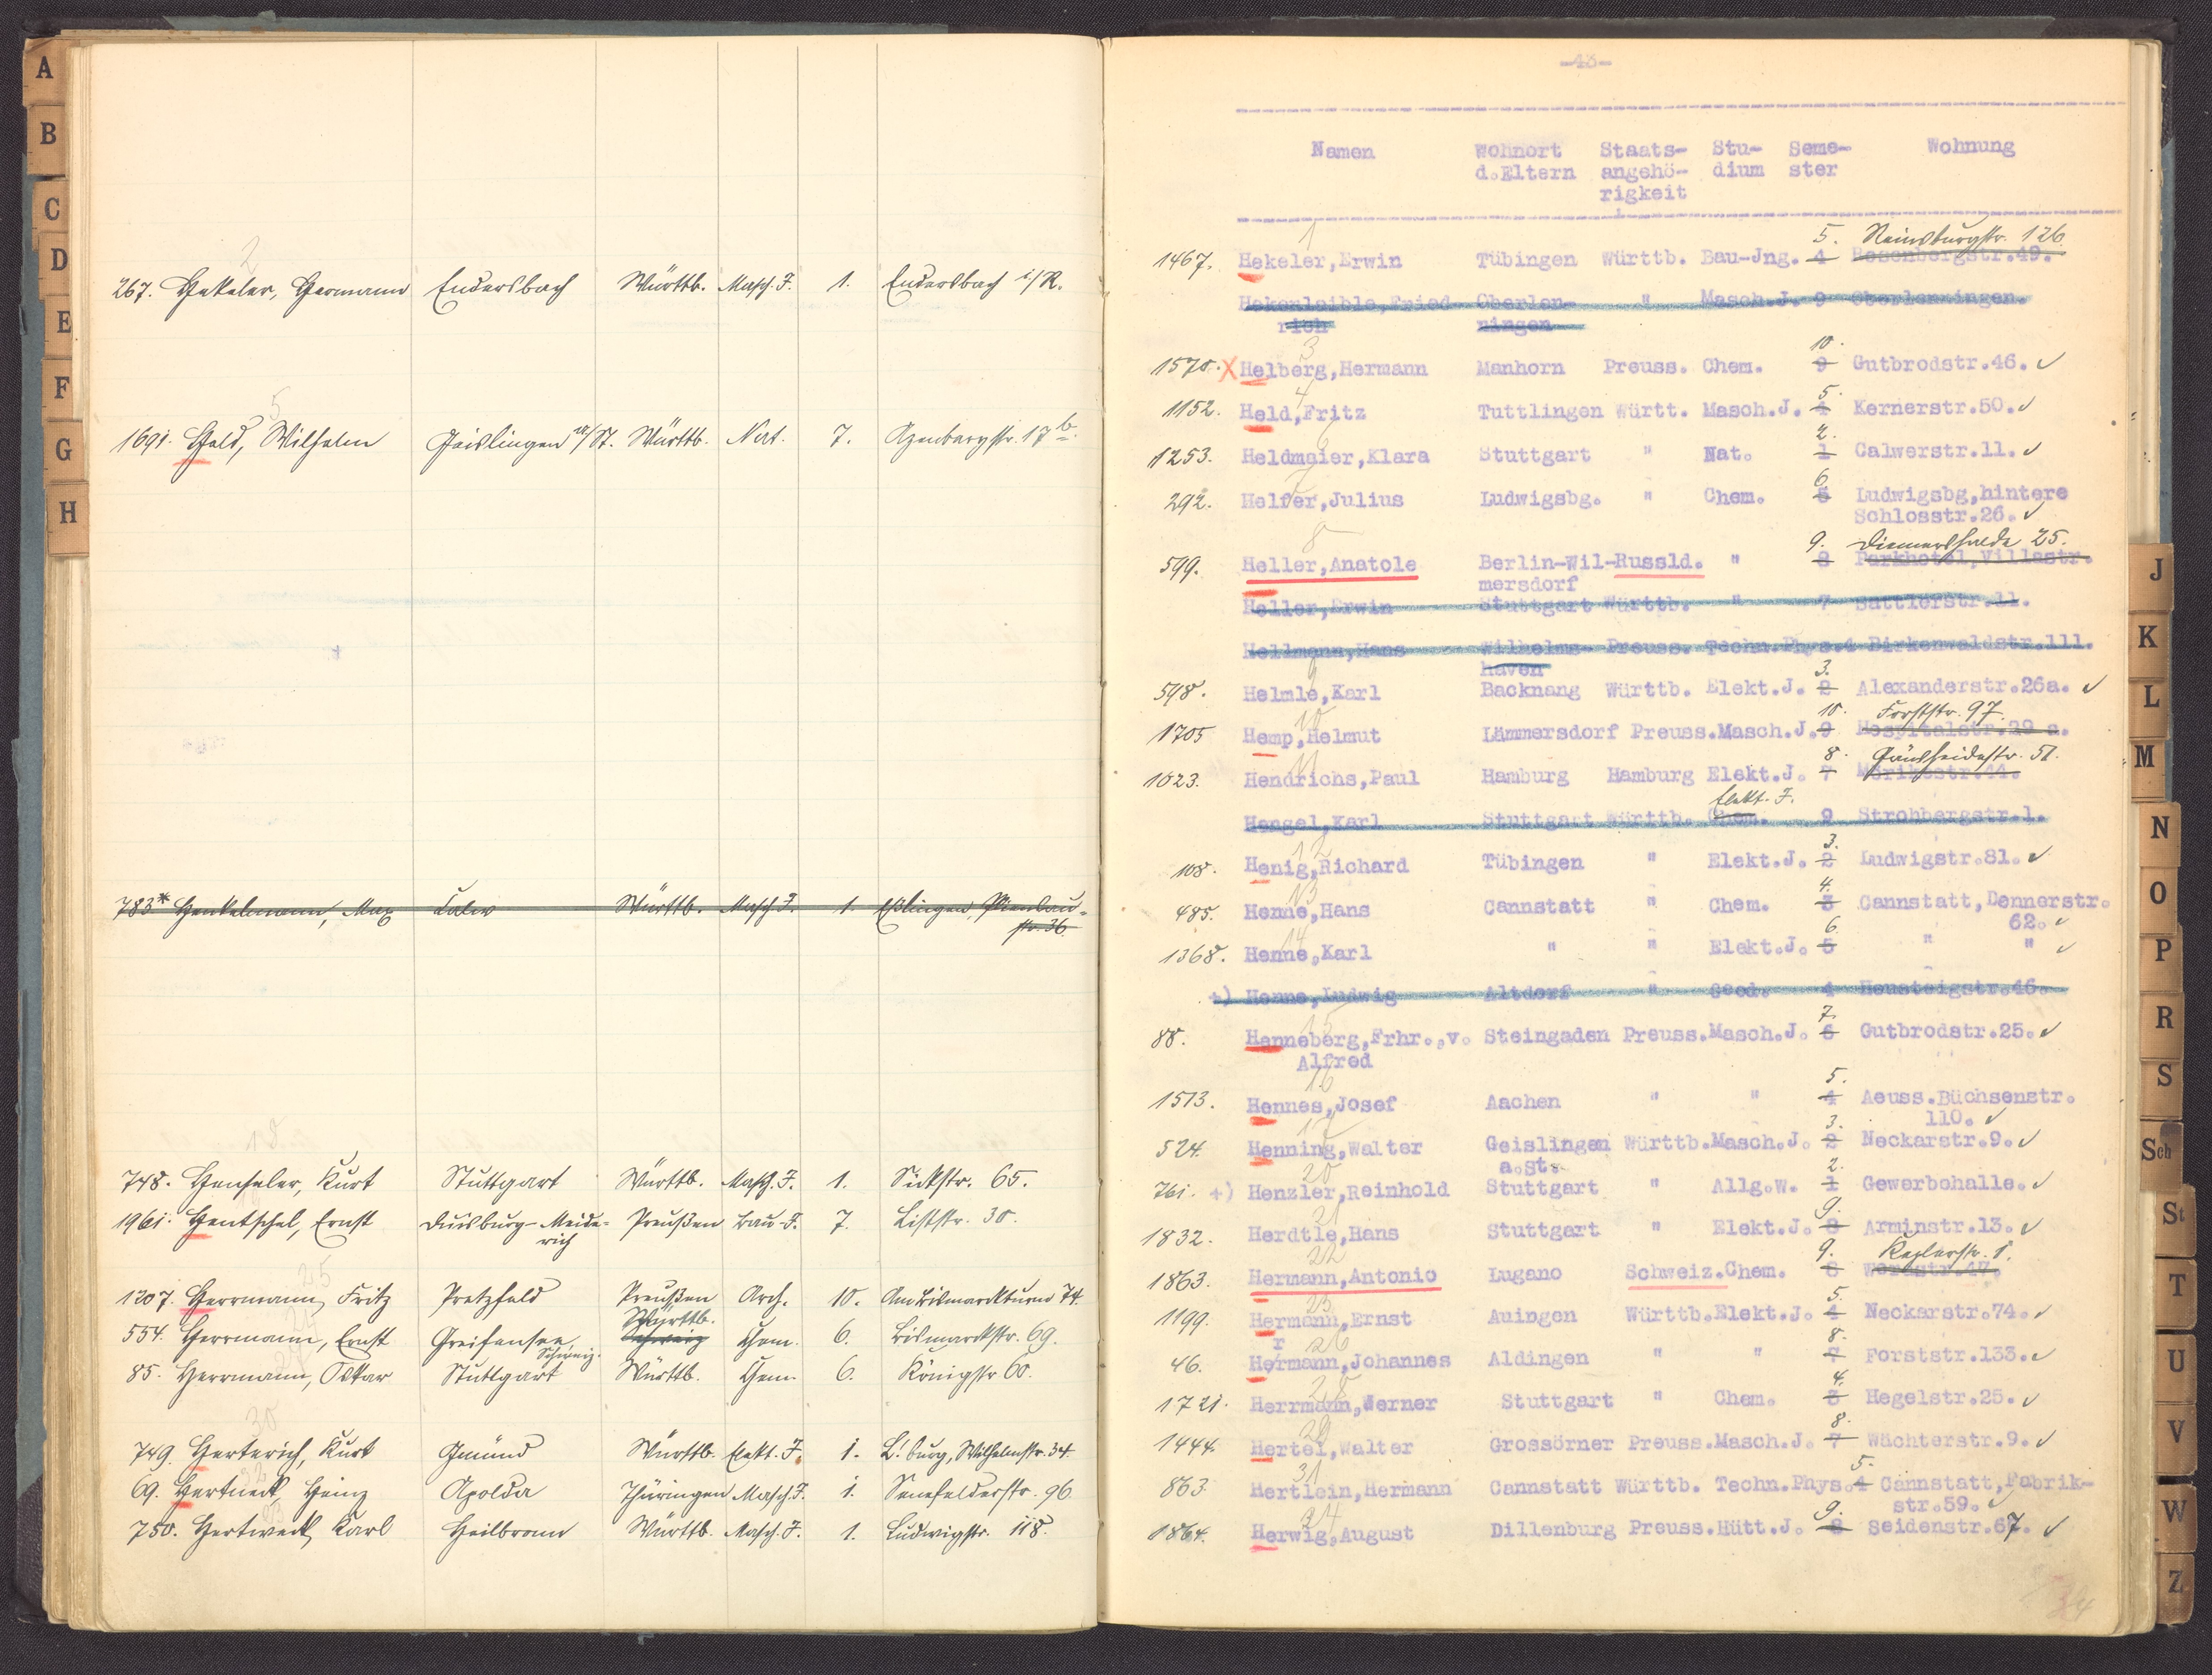 A
B
C
D
E
F
G
H
2
267. Hekeler, Hermann Endersbach Württb. Masch. J. 1. Endersbach i/R.
5
1691. Held, Wilhelm Geislingen a/St. Württb. Nat. 7. Azenbergstr. 17 b.
783* Henkelmann, Max Calw Württb. Masch. J. 1. Esslingen,
str. 36
18
748. Henseler, Kurt Stuttgart Württb. Masch. J. 1. Sickstr. 65.
1961. Hentschel, Ernst Duisburg-Meide- Preußen Bau-J. 7. Liststr. 30.
rich
25
1207. Herrmann, Fritz Pretzfeld Preußen Arch. 10. Am Bismarckturm 74.
Württb.
554. Herrmann, Ernst Greifensee Schweiz Chem. 6. Bismarckstr. 69.
Schweiz.
85. Herrmann, Oskar Stuttgart Württb. Chem. 6. Königstr 60.
30
749. Herterich, Kurt Gmünd Württb. Elekt. J. 1. L'burg, Wilhelmstr. 34.
32
69. Hertneck Heinz Apolda Thüringen Masch. J. 1. Senefelderstr. 96.
33
750. Hertweck, Karl Heilbronn Württb. Masch. J. 1. Ludwigstr. 118.
-43-
Namen Wohnort Staats- Stu- Seme- Wohnung
d.Eltern angehö- dium ster
rigkeit
1 5. Reinsburgstr. 126.
1467. Hekeler,Erwin Tübingen Württb. Bau-Jng. 4 Rosenbergstr.49.
Hekenleible,Fried- Oberlen- " Masch.J. 9 Oberlenningen.
rich ningen
3 10.
1570. X Helberg,Hermann Manhorn Preuss. Chem. 9 Gutbrodstr.46. ✓
4 5.
1152. Held,Fritz Tuttlingen Württ. Masch.J. 4 Kernerstr.50. ✓
6 2.
1253. Heldmaier,Klara Stuttgart " Nat. 1 Calwerstr.11. ✓
7 6.
292. Helfer,Julius Ludwigsbg. " Chem. 5 Ludwigsbg,hintere
Schlosstr.26. ✓
8 9. Diemershalde 25.
599. Heller,Anatole Berlin-Wil- Russld. " 8 Parkhotel,Villastr.
mersdorf
Heller,Erwin Stuttgart Württb. " 7 Sattlerstr.11.
Hellmann,Hans Wilhelms- Preuss. Techn.Phys.4 Birkenwaldstr.111.
haven
9 3.
598. Helmle,Karl Backnang Württb. Elekt.J. 2 Alexanderstr.26a. ✓
10 10. Forststr. 97.
1705 Hemp,Helmut Lämmersdorf Preuss.Masch.J. 9 Hospitalstr.29 a.
11 8. Gänsheidestr. 51.
1023. Hendrichs,Paul Hamburg Hamburg Elekt.J. 7 Mörikestr.44.
Elekt. J.
Hengel,Karl Stuttgart Württb. Chem. 9 Strohbergstr.1.
12 3.
108. Henig,Richard Tübingen " Elekt.J. 2 Ludwigstr.81. ✓
13 4.
485. Henne,Hans Cannstatt " Chem. 3 Cannstatt,Dennerstr.
62. ✓
14 6
1368. Henne,Karl " " Elekt.J. 5 " " ✓
+) Henne,Ludwig Altdorf " Geod. 4 Heusteigstr.46.
15 7.
88. Henneberg,Frhr.,v. Steingaden Preuss.Masch.J. 6 Gutbrodstr.25. ✓
Alfred
16 5.
1513. Hennes,Josef Aachen " " 4 Aeuss.Büchsenstr.
110. ✓
17 3.
524. Henning,Walter Geislingen Württb.Masch.J. 2 Neckarstr.9. ✓
a.St.
20 2.
761. +) Henzler,Reinhold Stuttgart " Allg.W. 1 Gewerbehalle. ✓
21 9.
1832. Herdtle,Hans Stuttgart " Elekt.J. 8 Arminstr.13. ✓
22 9. Keplerstr. 1.
1863. Hermann,Antonio Lugano Schweiz.Chem. 8 Werastr.47.
23 5.
1199. Hermann,Ernst Auingen Württb.Elekt.J. 4 Neckarstr.74. ✓
r 26 8.
46. Hermann,Johannes Aldingen " " 7 Forststr.133. ✓
28 4.
1721. Herrmann,Werner Stuttgart " Chem. 3 Hegelstr.25. ✓
29 8.
1444. Hertel,Walter Grossörner Preuss.Masch.J. 7 Wächterstr.9. ✓
31 5.
863. Hertlein,Hermann Cannstatt Württb. Techn.Phys.4 Cannstatt,Fabrik-
str.59. ✓
34 9.
1864. Herwig,August Dillenburg Preuss.Hütt.J. 8 Seidenstr.67. ✓
34
J
K
L
M
N
O
P
R
S
Sch
St
T
U
V
W
Z